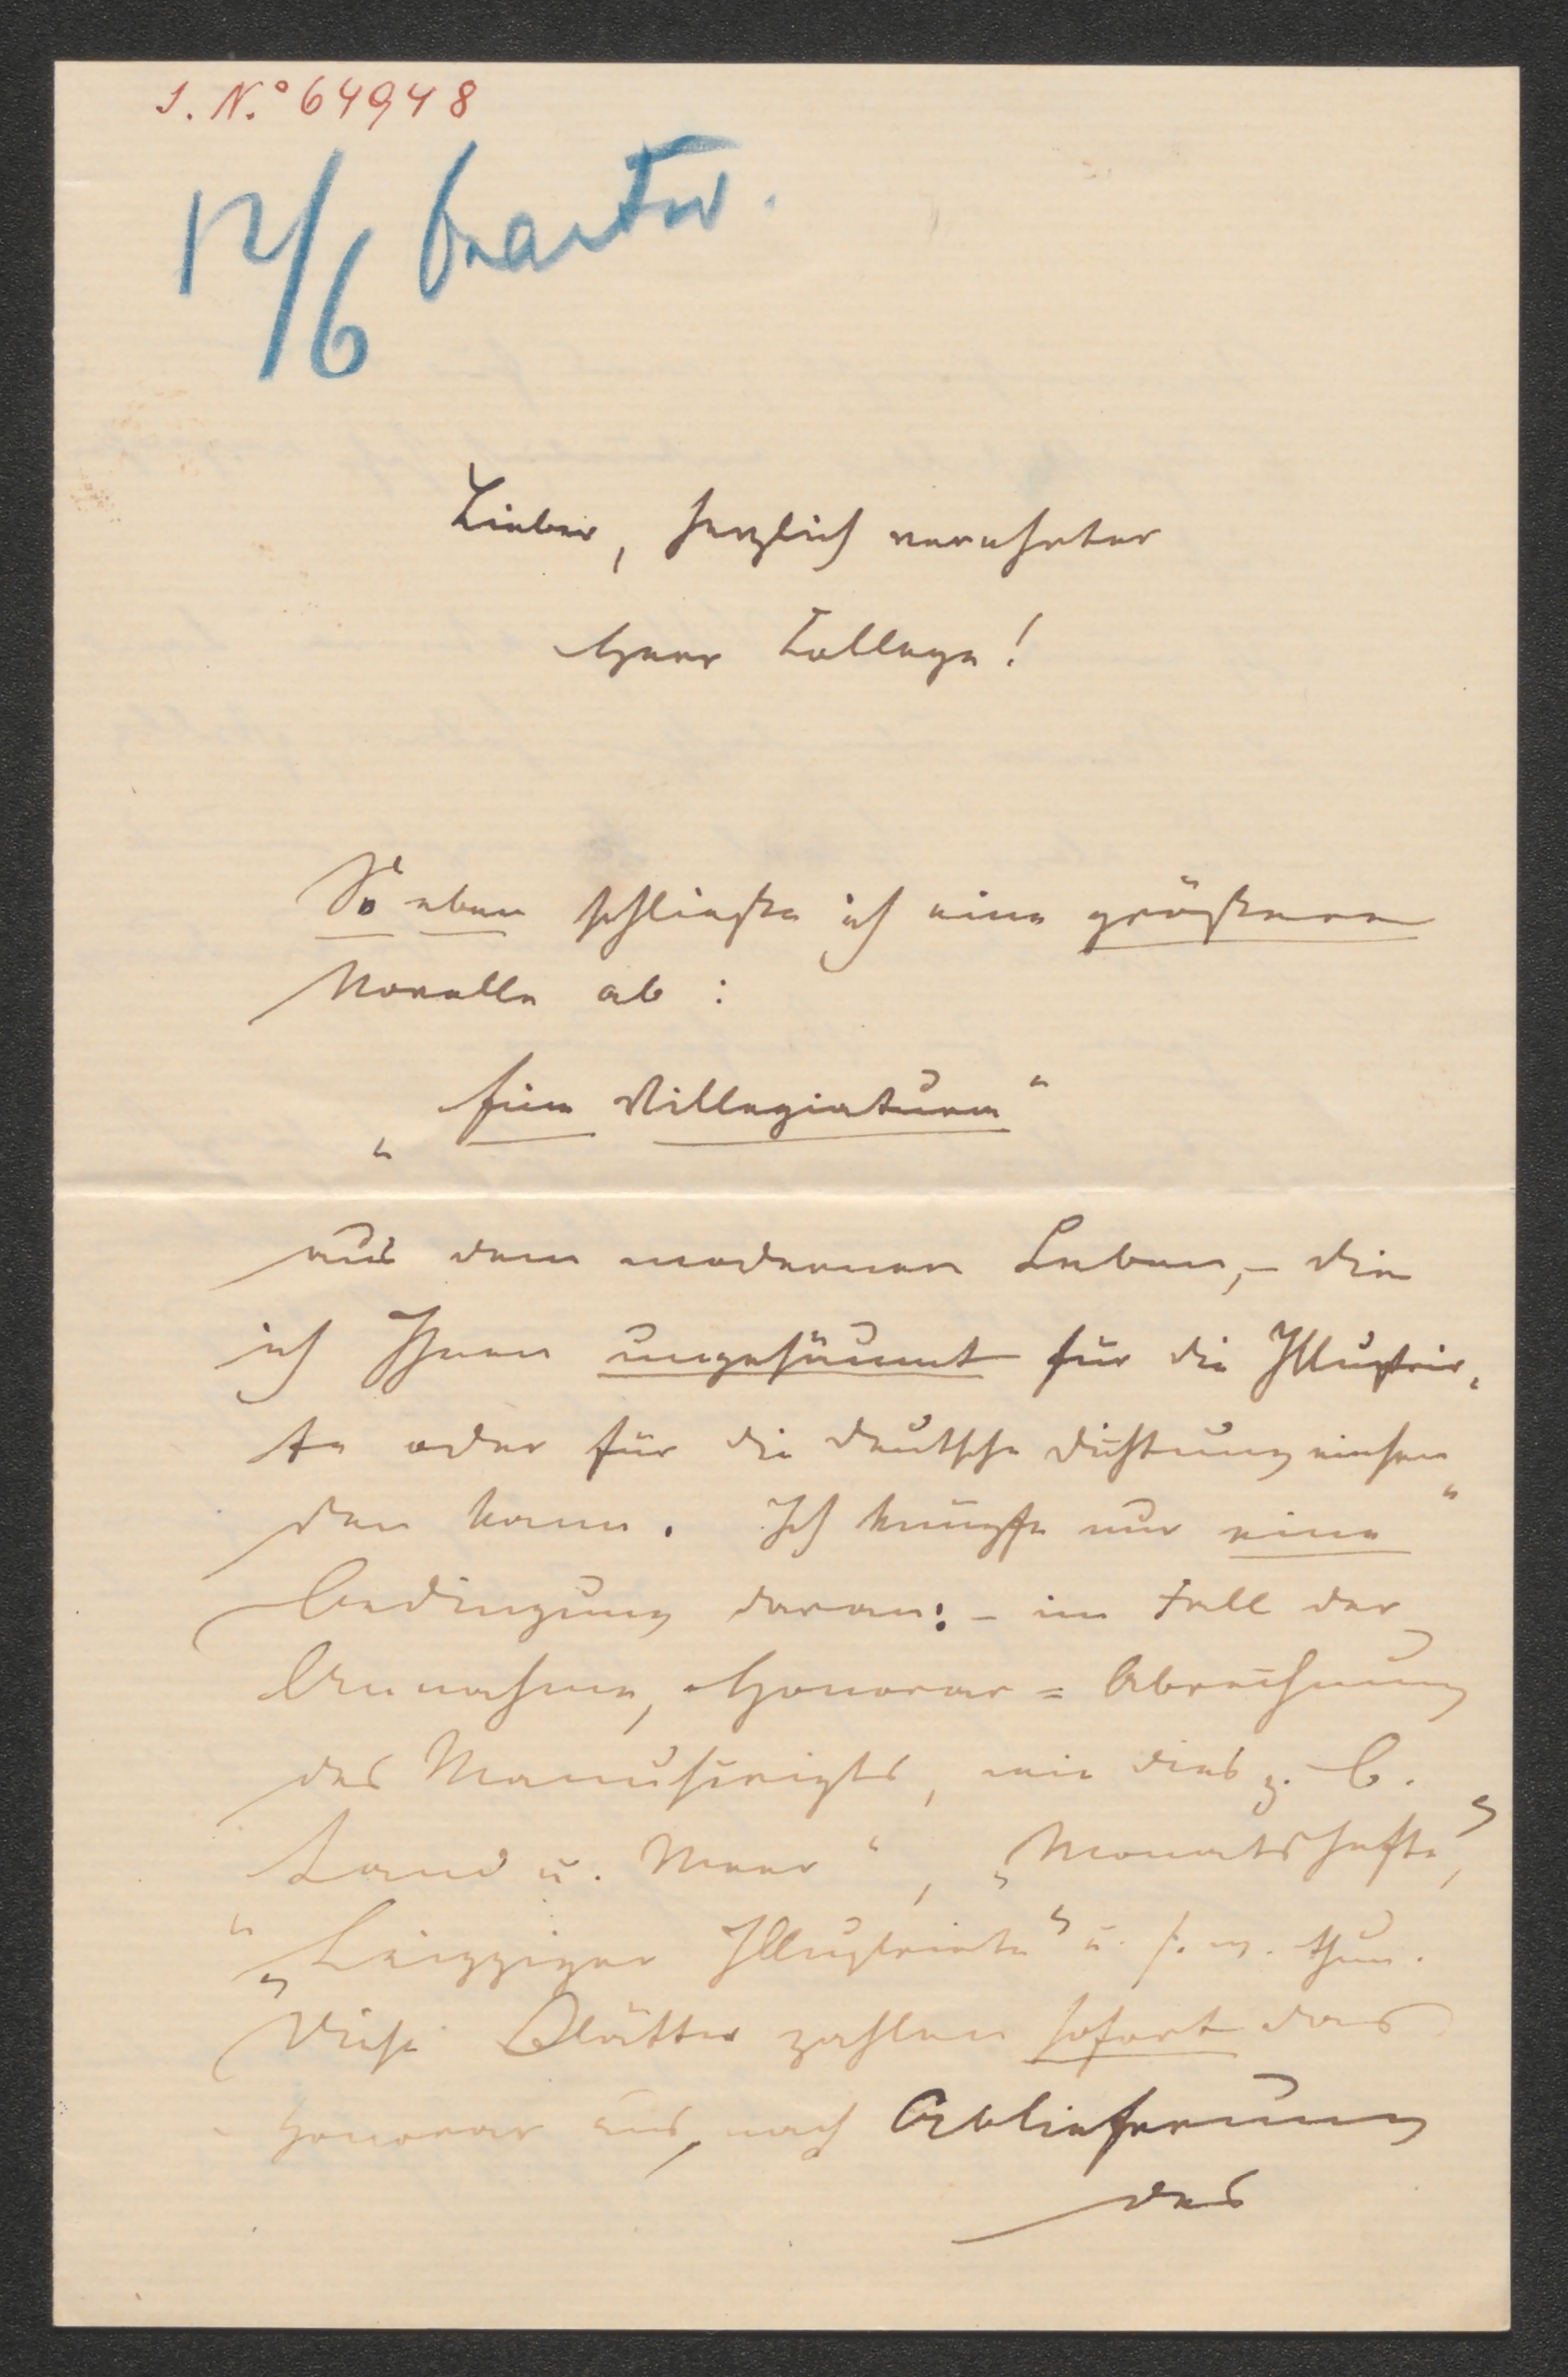 J. N.º 64948
12/6 beantw.
Lieber, herzlich verehrter
Herr College!
So eben schließe ich eine größere
Novelle ab:
„Eine Villegiatura“
aus dem modernen Leben, – die
ich Ihnen ungesäumt für die Illustrir-
te oder für die deutsche Dichtung einsen
den kann. Ich knüpfe nur eine
Bedingung daran: – im Fall der
Annahme, Honorar=Abrechnung
des Manuscripts, wie dies z. B. „
Land u. Meer“, „Monatshefte“,
„Leipziger Illustrirte“ u. s. w. thun.
Diese Blätter zahlen sofort das
Honorar aus, nach Ablieferung
des